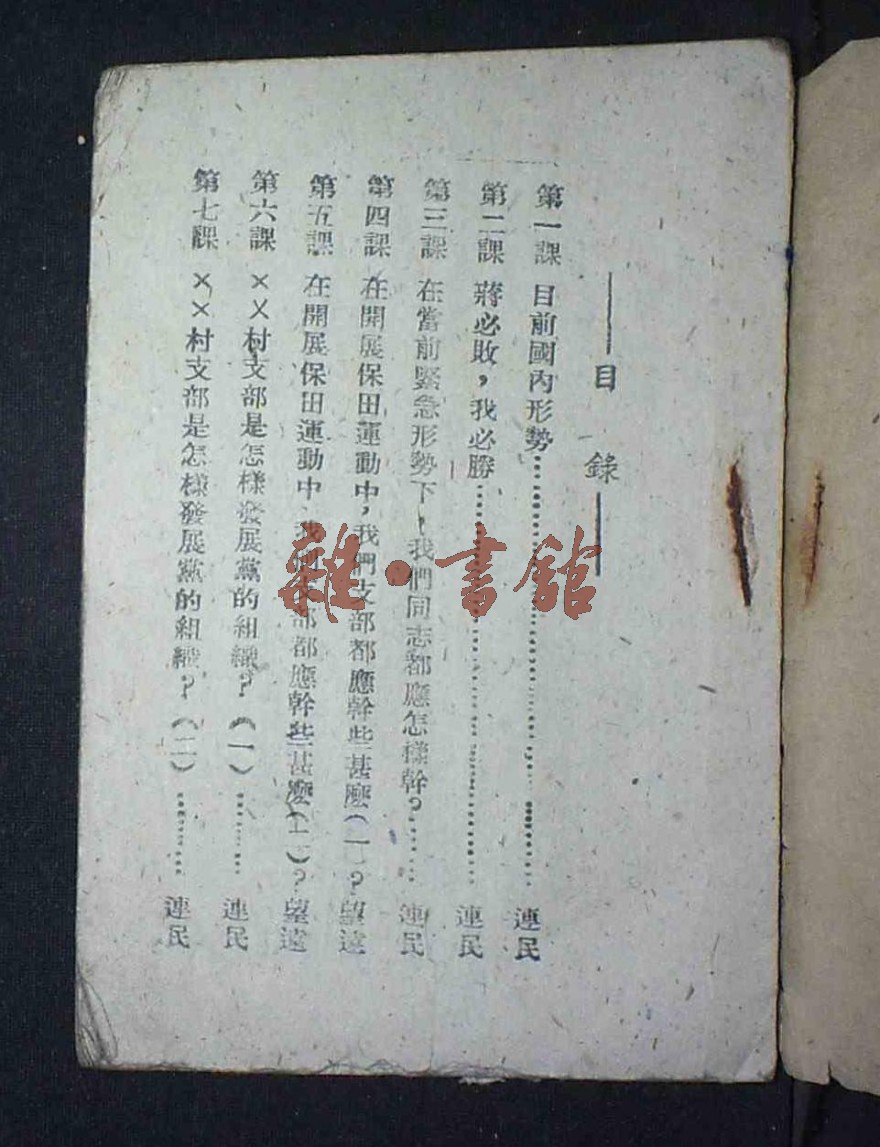 目錄
第一課 目前國內形勢……連民
第二課 蔣必敗，我必勝……連民
第三課 在當前緊急形勢下，我們同志都應怎樣幹？……連民
第四課 在開展保田運動中，我們支部都應幹些甚麼（一）？望遠
第五課 在開展保田運動中，我們支部都應幹些甚麼（二）？望遠
第六課 ××村支部是怎樣發展黨的組織？（一）……連民
第七課 ××村支部是怎樣發展黨的組織？（二）……連民
雜·書館